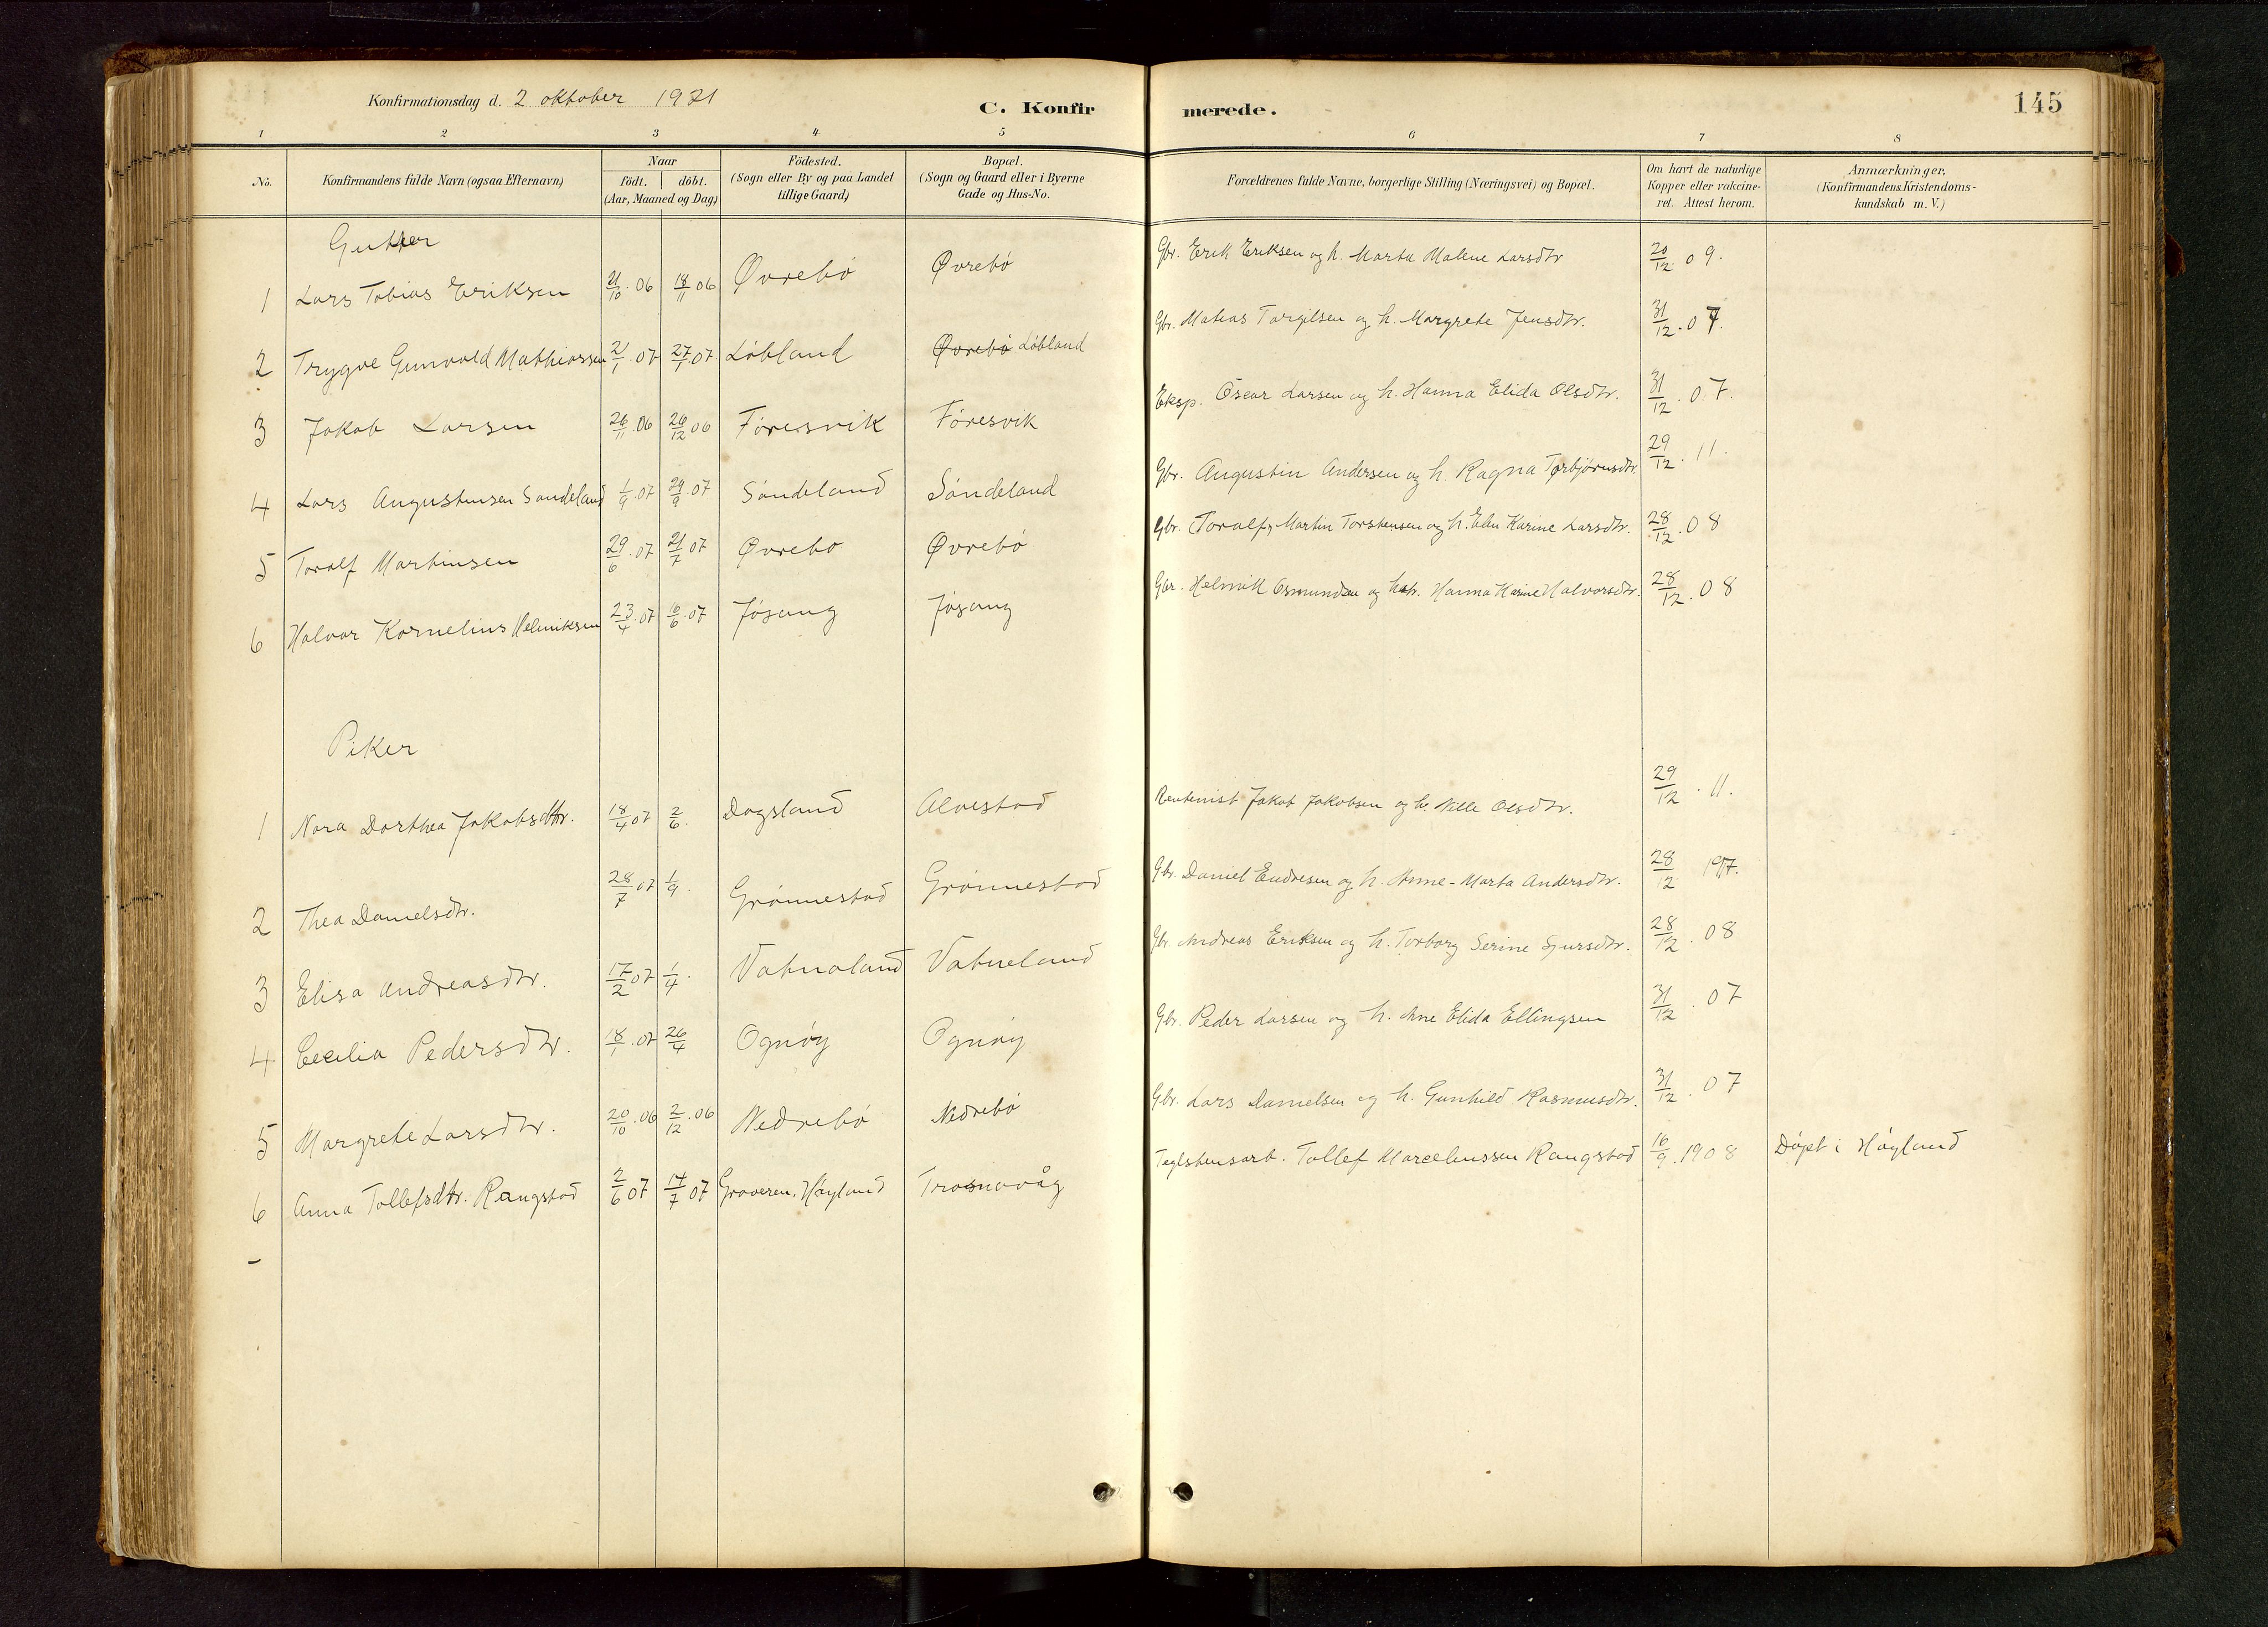 Konfirmationsdag d. 2 oktober 1921
C. Konfirmerede.
145
1 2 3 4 5 6 7 8
No.
Konfirmandens fulde Navn (ogsaa Efternavn)
Naar
födt. döbt.
(Aar, Maaned og Dag)
Födested.
(Sogn eller By og paa Landet
tillige Gaard)
Bopæl.
(Sogn og Gaard eller i Byerne
Gade og Hus-No.
Forældrenes fulde Navne, borgerlige Stilling (Næringsvei) og Bopæl.
Om havt de naturlige
Kopper eller vakcine-
ret. Attest herom.
Anmærkninger,
(Konfirmandens Kristendoms-
kundskab m. V.)
Gutter
1 Lars Tobias Eriksen 21/10 06 18/11 06 Øvrebø Øvrebø Gbr. Erik Eriksen og h. Marta Malene Larsdtr 20/12 09.
2 Trygve Gunvald Mathiassen 21/1 07 27/1 07 Løbland Øvrebø Løbland Gbr. Matias Torgilsen og h. Margrete Jensdtr. 31/12 07.
3 Jakob Larsen 26/11 06 26/12 06 Føresvik Føresvik Eksp. Oscar Larsen og h. Hanna Elida Olsdtr. 31/12 07.
4 Lars Augustinsen Søndeland 1/9 07 29/9 07 Søndeland Søndeland Gbr. Augustin Andersen og h. Ragna Torbjørnsdtr. 29/12 11.
5 Toralf Martinsen 29/6 07 21/7 07 Øvrebø Øvrebø Gbr. (Toralf) Martin Torstensen og h. Elen Karine Larsdtr. 28/12 08
6 Halvor Kornelius Helmiksen 23/4 07 16/6 07 Jøsang Jøsang Gbr. Helmik Osmundsen og h. Hanna Karine Halvorsdtr. 28/12 08
Piker
1 Nora Dorthea Jakobsdtr. 18/4 07 2/6. Dagsland Alvestad Rentenist Jakob Jakobsen og h. Nille Olsdtr. 29/12 11.
2 Thea Danielsdtr. 28/7 07 1/9. Grønnestad Grønnestad Gbr. Daniel Endresen og h. Anne-Marta Andersdtr. 28/12 1917.
3 Elisa Andreasdtr. 17/2 07 1/4. Vatnaland Vatneland Gbr. Andreas Eriksen og h. Torborg Serine Sjursdtr. 28/12 08
4 Cecilia Pedersdtr. 18/1 07 26/4 Ognøy Ognøy Gbr. Peder Larsen og h. Ane Elida Ellingsen 31/12 07
5 Margrete Larsdtr. 20/10 06 2/12 06 Nedrebø Nedrebø Gbr. Lars Danielsen og h. Gunhild Rasmusdtr. 31/12 07
6 Anna Tollefsdtr. Rangstad 2/6 07 14/7 07 Graveren, Høyland Trosnavåg Teglstensarb. Tollef Marceliussen Rangstad 16/9 1908 Døpt i Høyland